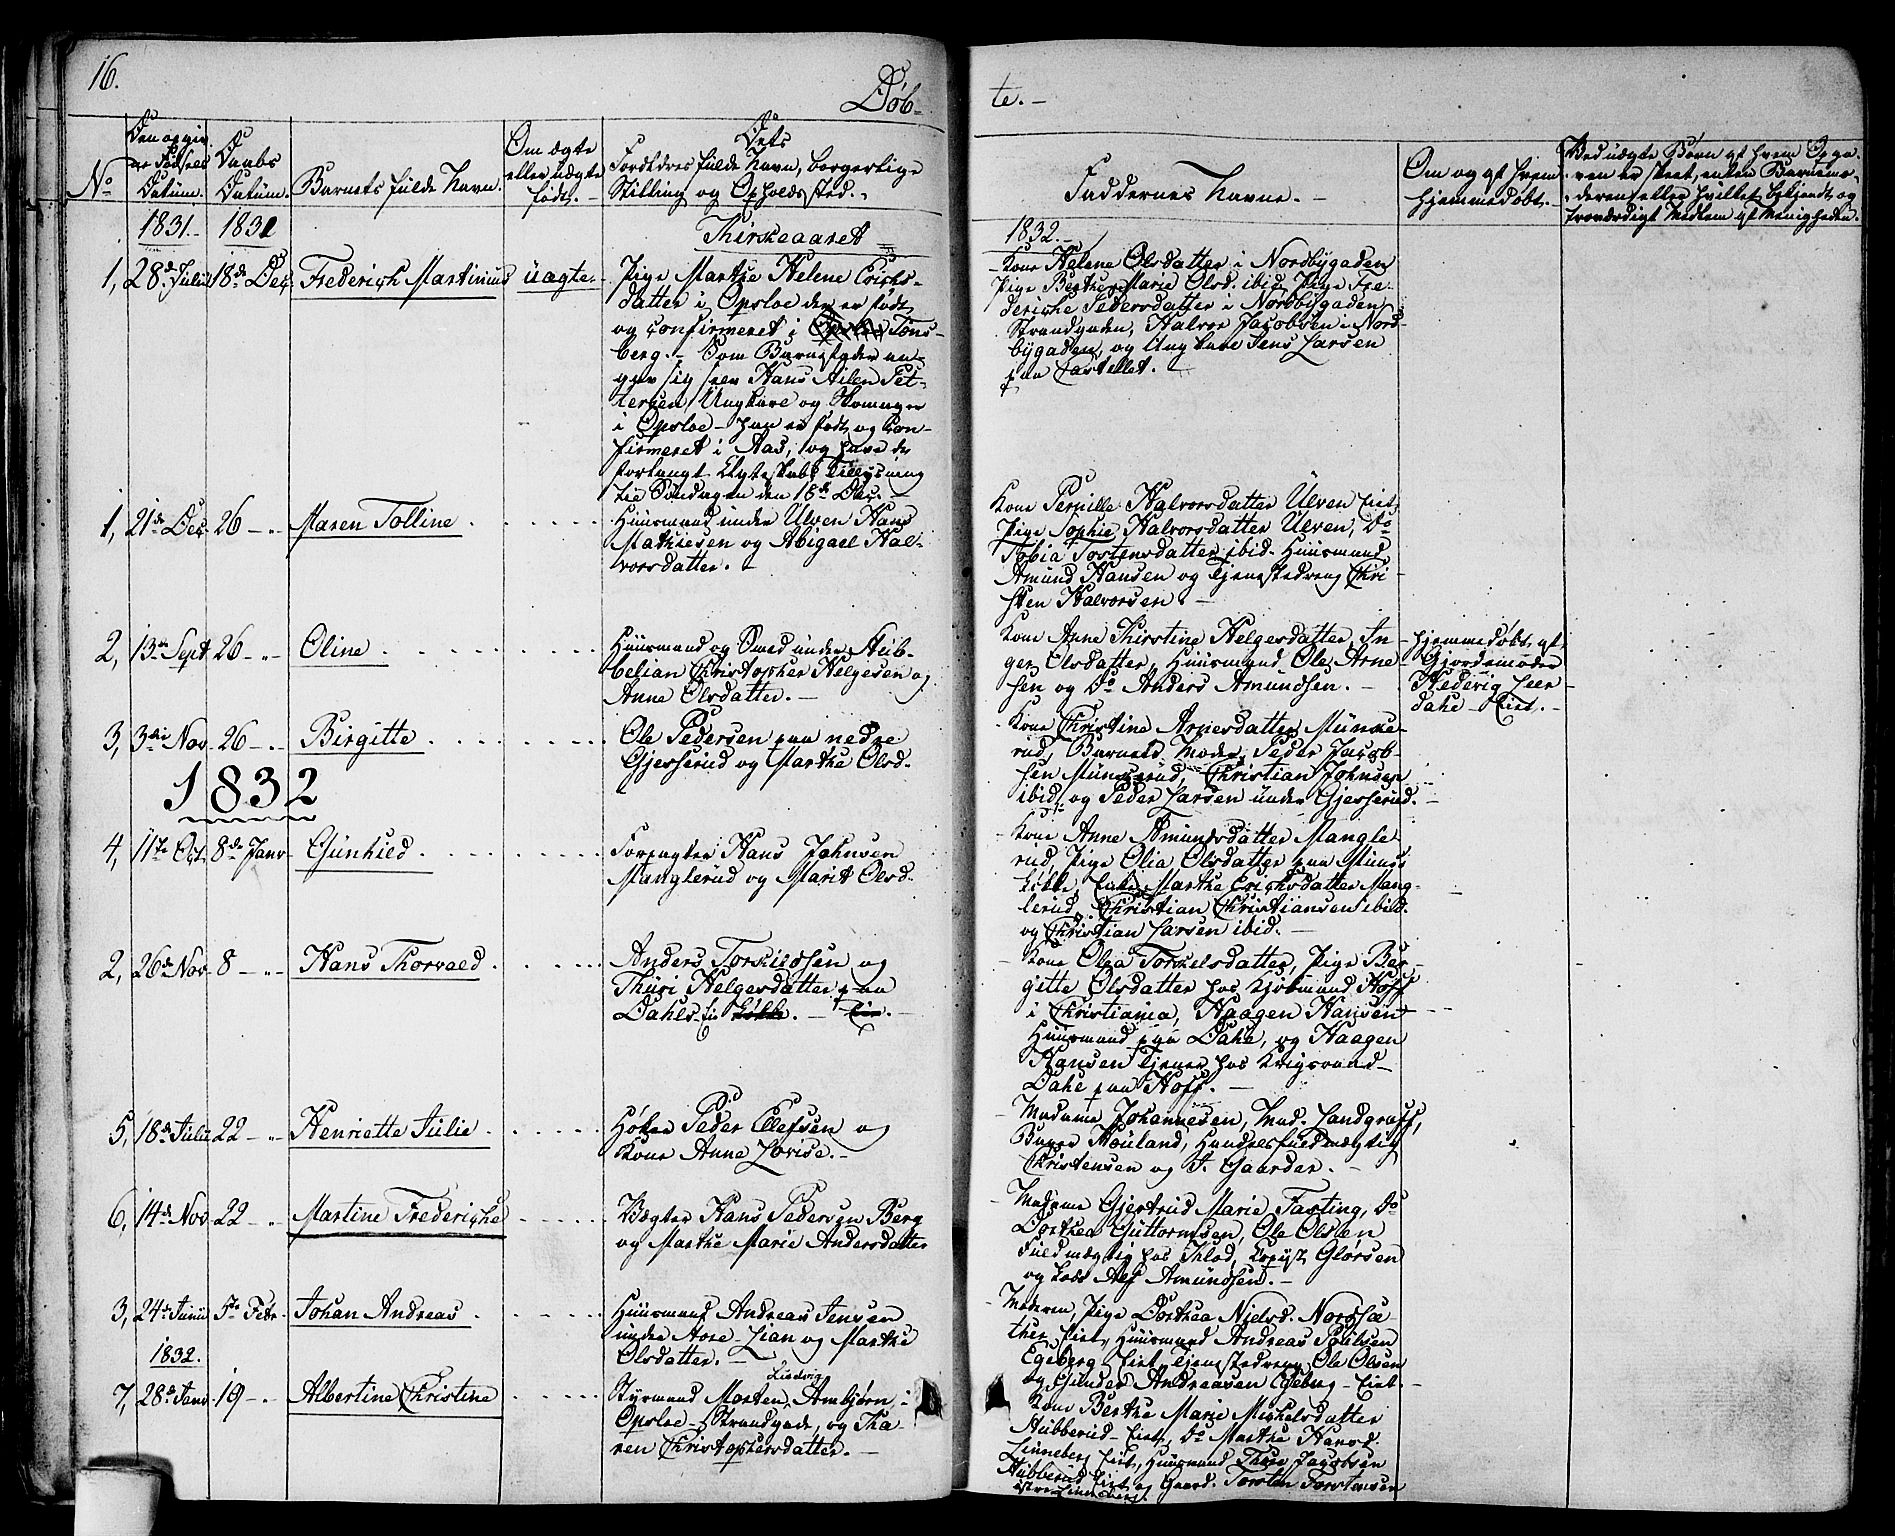 16.
Døb-
te. -
No
Den opgiv
ne Fødsels
Datum.
Daabs
Datum.
Barnets fulde Navn.
Om ægte
eller uægte
født. -
Dets
Forældres fulde Navn, borgerlige
Stilling og Opholdssted. -
Faddernes Navne. -
Om og af hvem
hjemmedøbt. -
Ved uægte Børn af hvem Opga-
ven er skeet, enten Barnemo-
deren eller hvilket bekjendt og
troværdigt Medlem af Menigheden.
1831. - 1831
Thirkeaaret
1832. -
1, 28de Julii 18de Dec. Frederich Martinius uægte -
Pige Marthe Helene Erichs-
datter i Opsloe der er født
og confirmeret i Tøns-
berg. - Som Barnefader an-
gav sig selv Hans Ailen Pet-
tersen Ungkarl og Skomager
i Opsloe - han er født og Con-
firmeret i Aas, og have de
forlangt Ægteskabs Tillysning
til Søndagen den 18de Dec. -
Kone Helene Olsdatter i Nordbygaden
Pige Berthe Marie Olsd. ibid, Pige Fre-
deriche Pedersdatter i Nordbygaden
Strandgaden, Halvor Jacobsen i Nord-
bygaden, og Ungkarl Jens Larsen
paa Castellet. -
1, 21de Dec. 26 - " - Maren Tolline
Huusmand under Ulven Hans
Mathiesen og Abigael Hal-
vorsdatter. -
Kone Pernille Halvorsdatter Ulven Eiet,
Pige Sophie Halvorsdatter Ulven, Do
Tobia Tostensdatter ibid. Huusmand
Amund Hansen og Tjenestedreng Chri-
sten Halvorsen. -
2, 13de Sept 26 - " - Oline
Huusmand og Smed under Aub-
belian Christopher Helgesen og
Anne Olsdatter. -
Kone Anne Kirstine Helgesdatter, In-
ger Olsdatter, Huusmand Ole Arne-
sen og Do Anders Amundsen. -
Hjemmedøbt af
Gjordemoder
Hedevig Leer
dahl - Eiet. -
3, 3die Nov. 26 - " - Birgitte
Ole Pedersen paa nedre
Gjesserud og Marthe Olsd.
Kone Christine Arnesdatter Munke-
rud, Barnets Moder, Peder Jacob-
sen Munkerud, Christian Johnsen
ibid, og Peder Larsen under Gjesserud. -
1832
4, 11te Oct. 8de Janv. Gunhild
Forpagter Hans Johnsen
Manglerud og Marit Olsd.
Kone Anne Amundsdatter Mangle-
rud, Pige Olia Olsdatter paa Munke
løkke, Eiet Marthe Erichsdatter Mang-
lerud, Christian Christiansen ibid.
og Christian Larsen ibid. -
2, 26de Nov. 8 - " - Hans Thorvald
Anders Torkildsen og
Thuri Helgesdatter paa
Dahls.
Kone Olea Torkelsdatter, Pige Ber-
gitte Olsdatter hos Kjøbmand Hoff
i Christiania, Haagen Hansen
Huusmand paa Dahl, og Haagen
Hansen Tjener hos Krigsraad
Dahl paa Hoff. -
5, 18de Julii 22 - " - Henriette Julie
Høker Peder Ellefsen og
Kone Anne Lovise. -
Madame Johannesen, Mad. Landgraff,
Bager Houland, Handelsfuldmægtig
Christensen og F. Gaarder. -
6, 14de Nov 22 - " - Martine Frederiche
Vægter Hans Pedersen Berg
og Marthe Marie Andersdatter
Madame Gjertrud Marie Fasting, Do
Dorthea Guttormsen, Ole Olsen
Fuldmægtig hos Thlod, Kopist Glørsen
og Lods Alf Amundsen. -
3, 24de Junii 5te Febr. Johan Andreas
Huusmand Andreas Jensen
under Aore-Lian og Marthe
Olsdatter. -
Moderen, Pige Dorthea Nielsd. Nordsæ-
ther Eiet, Huusmand Andreas Poulsen
Egeberg Eiet, Tjenestedreng Ole Olsen
og Gunder Andreasen Egeberg - Eiet. -
1832.
7, 28de Janv. 19 - " - Albertine Christine
Styrmand Morten Ludvig Ambjørn, i
Opsloe - Strandgade, og Tha-
ren Christophersdatter. -
Kone Berthe Marie Michelsdatter
Hubberud - Eiet, Do Marthe Hansd.
Linneberg Eiet, Huusmand Thore Jacobsen
Hubberud Eiet og Gaard. Torsten Torstensen